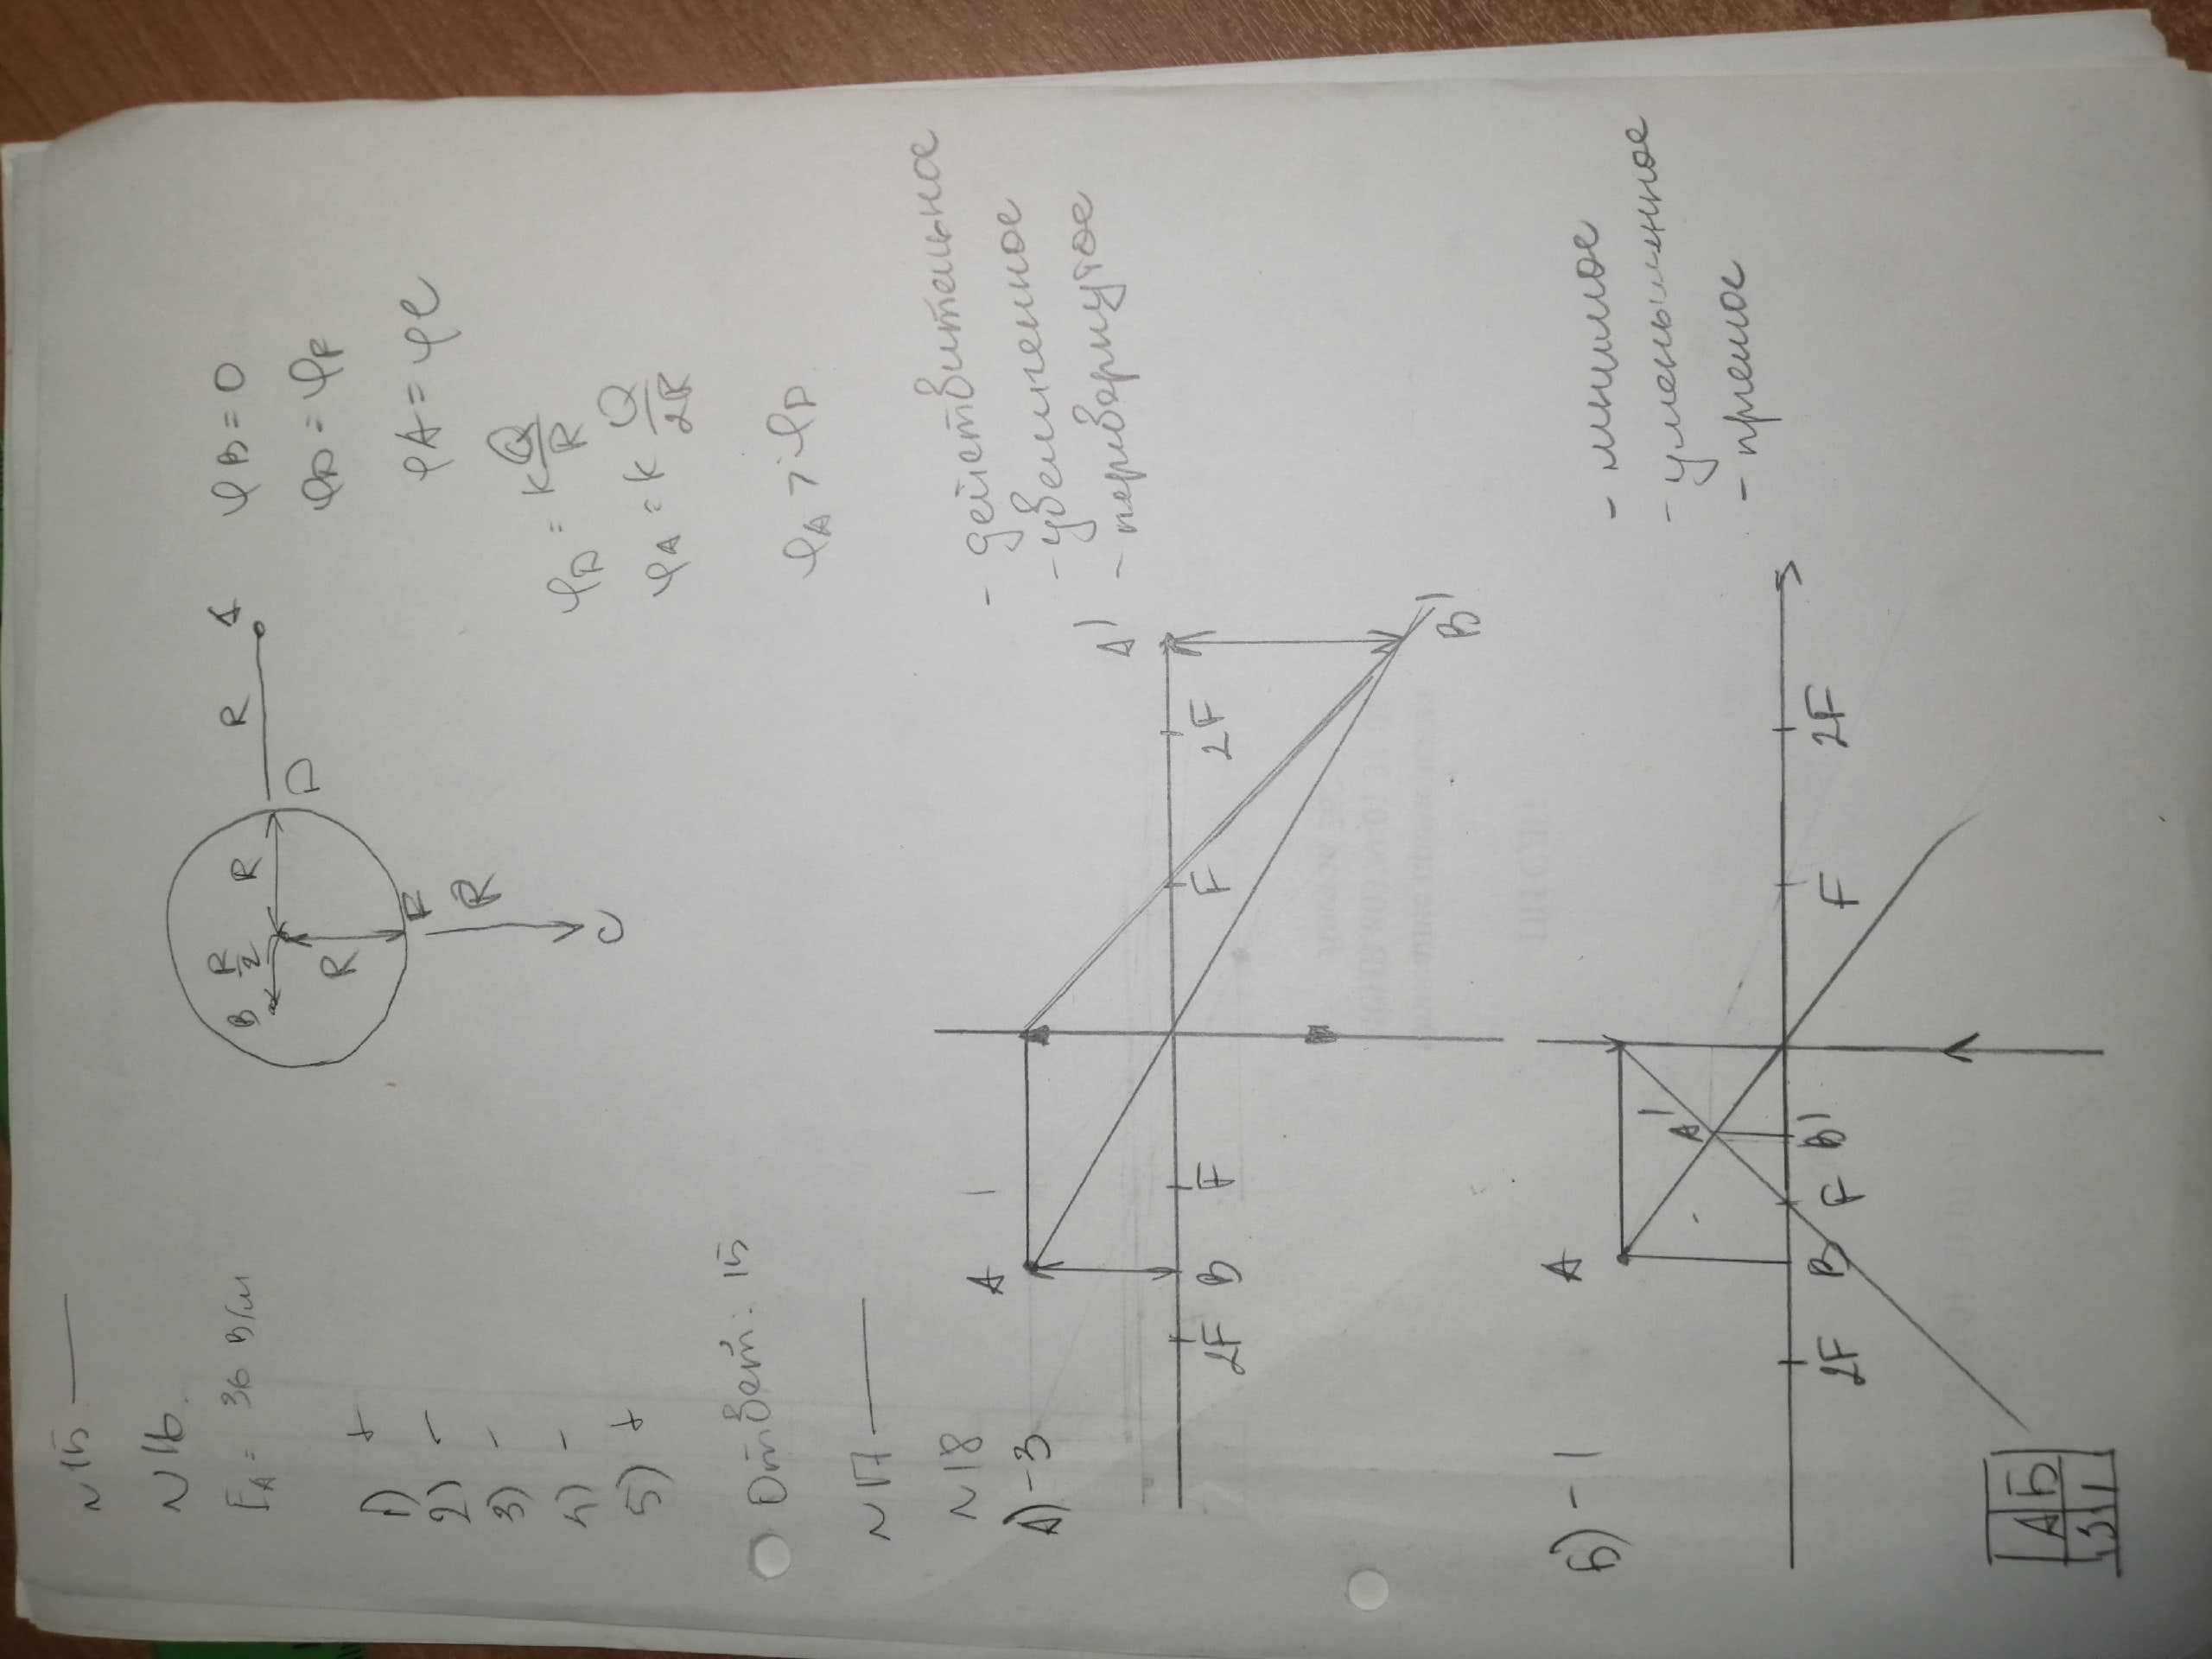 №15 —
№16.
E_A = 36 В/м
1) +
2) -
3) -
4) -
5) +
Ответ: 15
B R/2 R
R
D
R A
F
R
C
φ_B = 0
φ_D = φ_F
φ_A = φ_C
φ_D = k Q/R
φ_A = k Q/2R
φ_A > φ_D
№17 —
№18
А) - 3
A
2F B F F 2F
A'
B'
- действительное
- увеличенное
- перевернутое
Б) - 1
A
A'
2F B F B' F 2F
- мнимое
- уменьшенное
- прямое
А Б
3 1